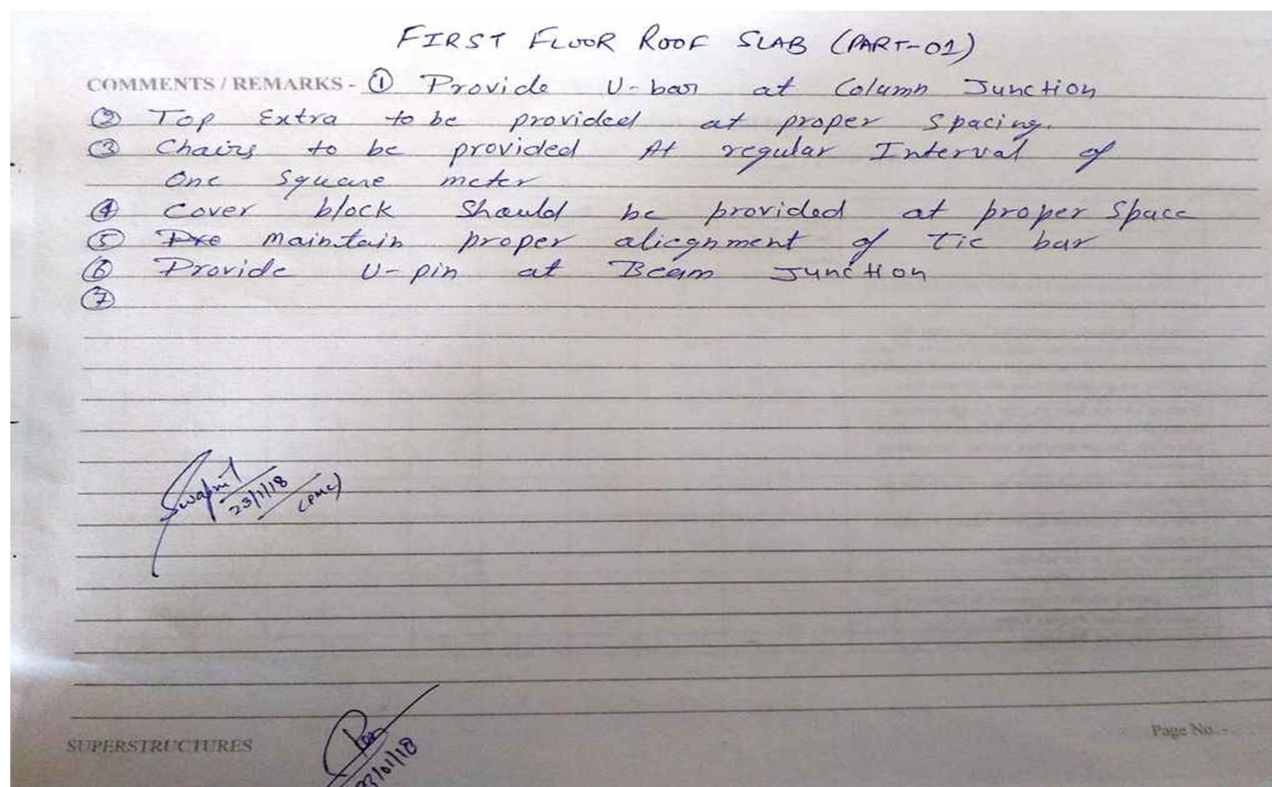 FIRST FLOOR ROOF SLAB (PART-01)
COMMENTS / REMARKS - ① Provide U-bar at Column Junction
② Top Extra to be provided at proper spacing.
③ Chairs to be provided At regular Interval of
One Square meter
④ Cover block Should be provided at proper space
⑤ Pro maintain proper aliegnment of tie bar
⑥ Provide U-pin at Beam Junction
⑦
Swapnil
23/1/18
(PMC)
SUPERSTRUCTURES
23/01/18
Page No. -